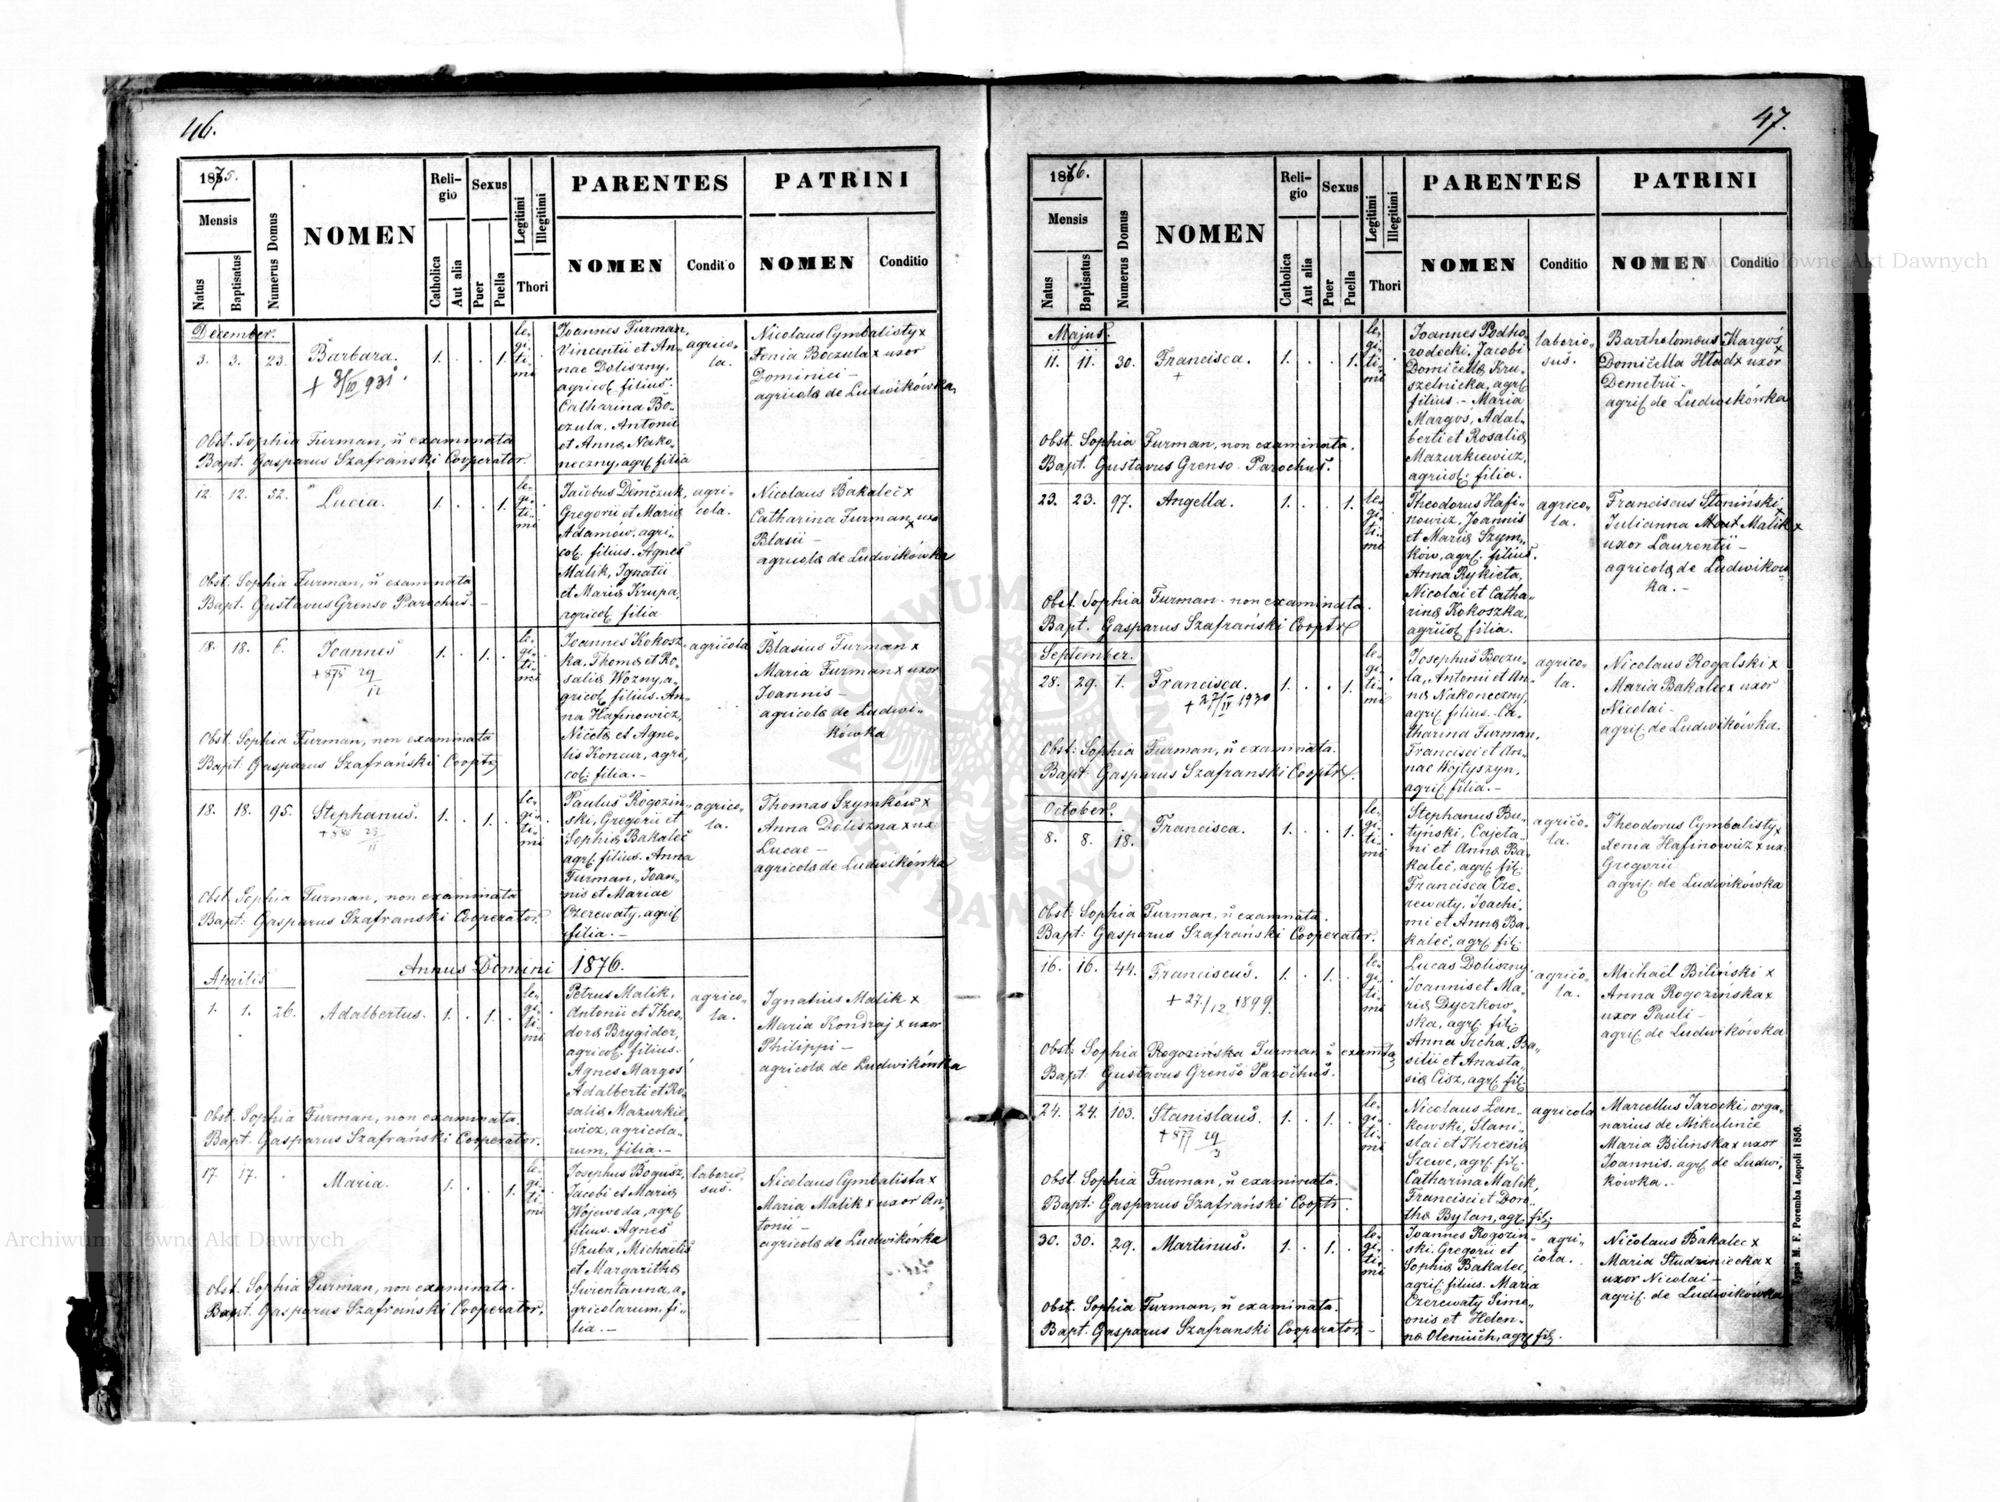 46.
1875.
Mensis
Natus
Baptisatus
Numerus Domus
NOMEN
Religio
Catholica
Aut alia
Sexus
Puer
Puella
Legitimi
Illegitimi
Thori
PARENTES
NOMEN
Conditio
PATRINI
NOMEN
Conditio
December.
3. 3. 23. Barbara. 1. . . 1. legitimi
Joannes Furman,
Vincentii et An-
nae Doliszny,
agricol. filius.
Catharina Bo-
czula, Antonii
et Annæ Nako-
neczny, agrl. filia
agrico-
la.
Nicolaus Cymbalisty x
Fenia Boczula x uxor
Dominici -
agricolæ de Ludwikówka,
Obst. Sophia Furman, ñ examinata
Bapt. Gasparus Szafrański Cooperator.
12. 12. 52. Lucia. 1. . . 1. legitimi
Jacobus Demczuk,
Gregorii et Mariæ
Adamów, agri-
col. filius. Agnes
Malik, Ignatii
et Mariæ Krupa,
agricol. filia
agri-
cola.
Nicolaus Bakaleć x
Catharina Furman x uxo
Blasii -
agricolæ de Ludwikówka
Obst. Sophia Furman, ñ examinata
Bapt. Gustavus Grenso Parochus. -
18. 18. 6. Joannes 1. . 1. . legitimi
+ 875 29/12
Joannes Kokosz-
ka, Thomæ et Ro-
saliæ Wozny, a-
gricol. filius. An-
na Hafinowicz,
Nicolæ et Agne-
tis Koncur, agri-
col: filia. -
agricola
Blasius Furman x
Maria Furman x uxor
Joannis -
agricolæ de Ludwi-
kówka
Obst: Sophia Furman, non examinata
Bapt: Gasparus Szafrański Coopt;
18. 18. 95. Stephanus. 1. . 1. . legitimi
+ 880 23/11
Paulus Rogozin-
ski, Gregorii et
Sophiæ Bakaleć
agrl. filius. Anna
Furman, Joan-
nis et Mariae
Czerewaty, agril
filia. -
agrico-
la.
Thomas Szymków x
Anna Doliszna x ux
Lucae -
agricolæ de Ludwikówka
Obst. Sophia Furman, non examinata
Bapt: Gasparus Szafranski Cooperator.
Annus Domini 1876.
Aprilis
1. 1. 26. Adalbertus. 1. . 1. . legitimi
Petrus Malik,
Antonii et Theo-
doræ Brygider,
agricol. filius.
Agnes Margos
Adalberti et Ro-
saliæ Mazurkie-
wicz, agricola-
rum, filia. -
agrico-
la.
Ignatius Malik x
Maria Kondraj x uxor
Philippi -
agricolæ de Ludwikówka
Obst. Sophia Furman, non examinata.
Bapt. Gasparus Szafrański Cooperator.
17. 17. . Maria. 1. . . 1. legitimi
Josephus Bogusz,
Jacobi et Mariæ
Wojewoda, agrl
filius. Agnes
Szuba, Michaelis
et Margarithæ
Swientanna, a-
gricolarum, fi-
lia. -
laborio-
sus.
Nicolaus Cymbalista x
Maria Malik x uxor An-
tonii -
agricolæ de Ludwikówka
Obst. Sophia Furman, non examinata.
Bapt. Gasparus Szafrański Cooperator.
47.
1876.
Mensis
Natus
Baptisatus
Numerus Domus
NOMEN
Religio
Catholica
Aut alia
Sexus
Puer
Puella
Legitimi
Illegitimi
Thori
PARENTES
NOMEN
Conditio
PATRINI
NOMEN
Conditio
Majus.
11. 11. 30. Francisca. 1. . . 1. legitimi
+
Joannes Podho-
rodecki, Jacobi
Domicellæ Kru-
szelnicka, agrl
filius. - Maria
Margoś, Adal-
berti et Rosaliæ
Mazurkiewicz,
agricol. filia.
laborio-
sus.
Bartholomæus Margoś x
Domicella Hlad x uxor
Demetrii -
agril de Ludwikówka
Obst. Sophia Furman, non examinata.
Bapt. Gustavus Grenso - Parochus.
23. 23. 97. Angella. 1. . . 1. legitimi
Theodorus Hafi-
nowicz, Joannis
et Mariæ Szym-
ków, agrl. filius.
Anna Rykieta,
Nicolai et Catha-
rinæ Kokoszka,
agricol. filia.
agrico-
la.
Franciscus Staniński x
Julianna Malik x
uxor Laurentii -
agricolæ de Ludwików-
ka. -
Obst. Sophia Furman - non examinata.
Bapt. Gasparus Szafrański Cooptr
September.
28. 29. 1. Francisca. 1. . . 1. legitimi
+ 27/IV 1930
Josephus Boczu-
la, Antonii et An-
næ Nakoneczny,
agril filius. - Ca-
tharina Furman,
Francisci et An-
nae Wojtyszyn,
agril. filia. -
agrico-
la.
Nicolaus Rogalski x
Maria Bakalec x uxor
Nicolai -
agril. de Ludwikówka.
Obst: Sophia Furman, ñ examinata.
Bapt: Gasparus Szafranski Cooptr.
October.
8. 8. 18. Francisca. 1. . . 1. legitimi
Stephanus Bu-
tyński, Cajeta-
ni et Annæ Ba-
kaleć, agrl. fil:
Francisca Cze-
rewaty, Joachi-
mi et Annæ Ba-
kaleć, agrl. fil:
agrico-
la.
Theodorus Cymbalisty x
Xenia Hafinowicz x ux
Gregorii
agril: de Ludwikówka
Obst: Sophia Furman, ñ examinata.
Bapt: Gasparus Szafrański Cooperator.
16. 16. 44. Franciscus. 1. . 1. . legitimi
+ 27./12 1899.
Lucas Doliszny
Joannis et Ma-
riæ Dyczkow-
ska, agrl: fil:
Anna Ircha, Ba-
silii et Anasta-
siæ Cisz, agrl. fil:
agrico-
la.
Michaël Biliński x
Anna Rogozińska x
uxor Pauli -
agril de Ludwikówka
Obst: Sophia Rogozińska Furman ñ examta
Bapt: Gustavus Grenso Parochus.
24. 24. 103. Stanislaus. 1. . 1. . legitimi
+ 877 29/3
Nicolaus Lan-
kowski, Stani-
slai et Theresiæ
Szewc, agrl. fil:
Catharina Malik,
Francisci et Doro-
theæ Bylan, agr. fil:
agricola
Marcellus Jarocki, orga-
narius de Mikulince
Maria Bilinska x uxor
Joannis. agrl de Ludwi-
kówka. -
Obst. Sophia Furman, ñ examinata.
Bapt: Gasparus Szafranski Coopt.
30. 30. 29. Martinus. 1. . 1. . legitimi
Joannes Rogozin-
ski, Gregorii et
Sophiæ Bakaleć,
agril filius. Maria
Czerewaty Sime-
onis et Helen-
næ Oleniuch, agrl fil:
agri-
cola.
Nicolaus Bakalec x
Maria Studziniecka x
uxor Nicolai -
agril. de Ludwikówka
Obst. Sophia Furman, ñ examinata.
Bapt. Gasparus Szafranski Cooperator. -
Typis M. F. Poremba Leopoli 1856.
ARCHIWUM GŁÓWNE AKT DAWNYCH
Archiwum Główne Akt Dawnych
Archiwum Główne Akt Dawnych